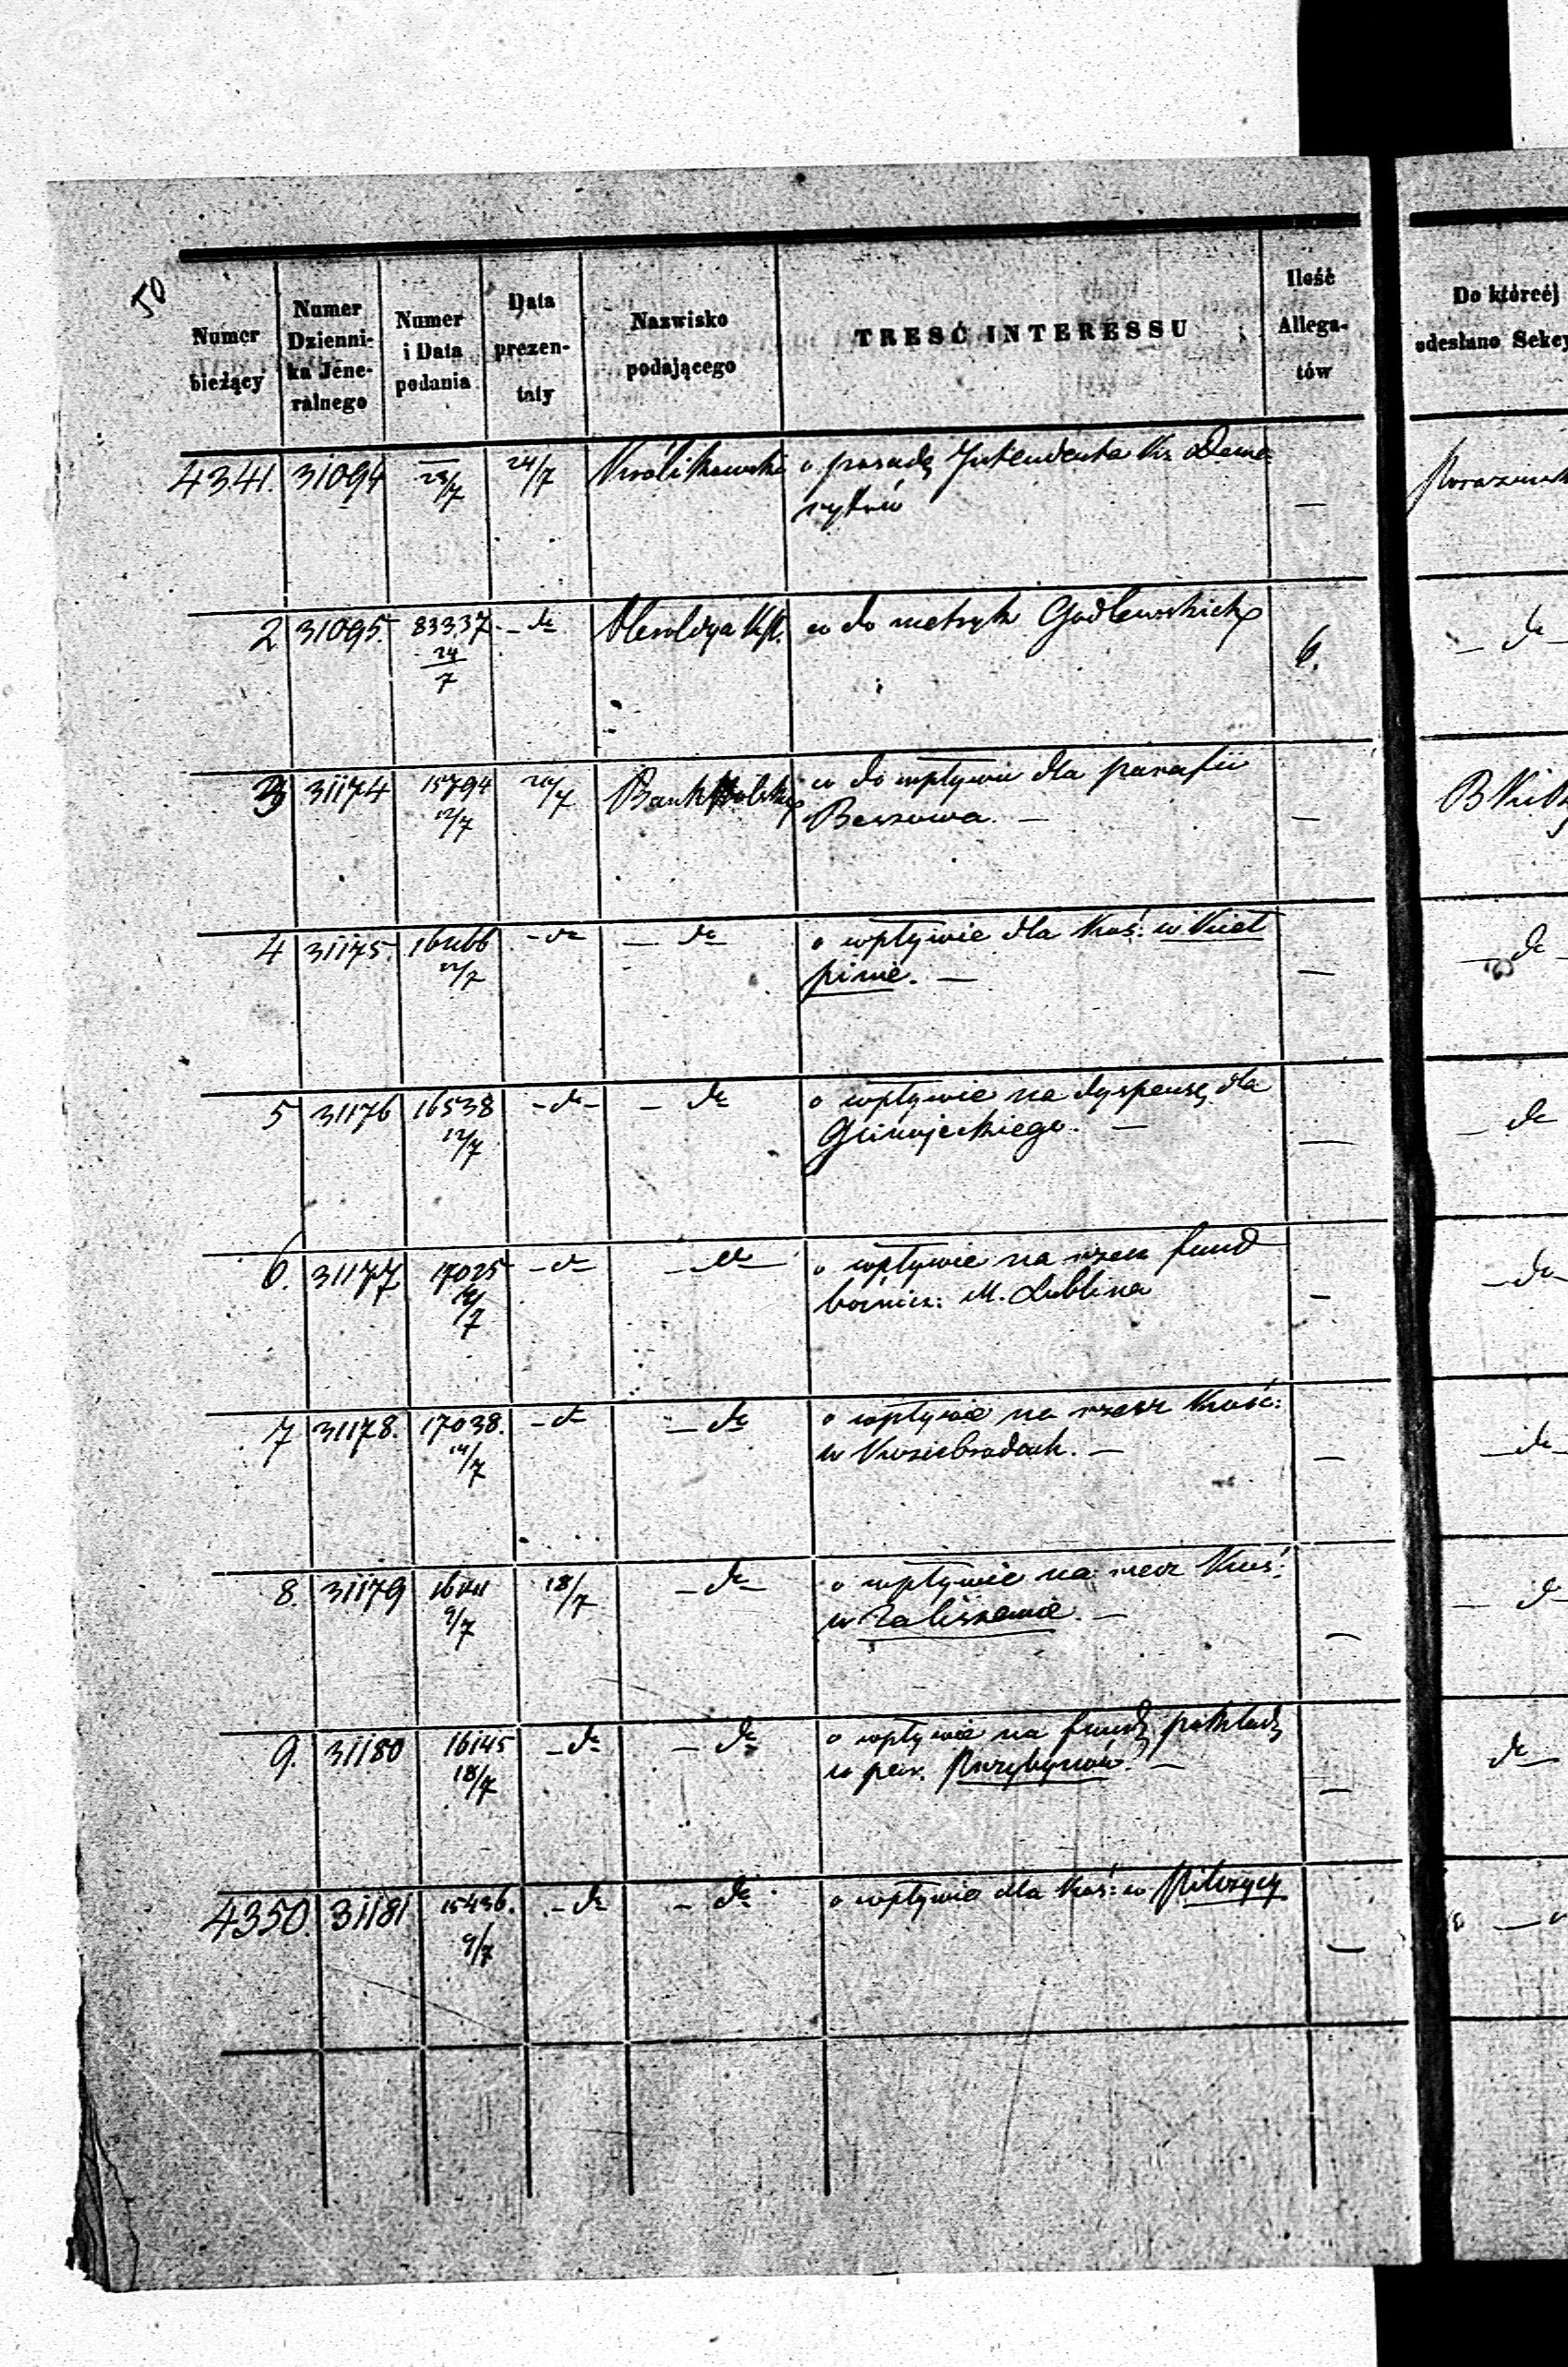 50
Numer bieżący | Numer Dziennika Jeneralnego | Numer i Data podania | Data prezentaty | Nazwisko podającego | TRESĆ INTERESSU | Ilość Allegatów | Do któreéj odesłano Sekcy
4341. | 31094 | — 23/7 | 24/7 | Królikowski | o posadę Intendenta Kr. Deme-
rytów | —
2 | 31095. | 83337 24/7 | — do | Heroldya Kp. | co do metryk Godlewskich | 6. | — do —
3 | 31174 | 15794 12/7 | 20/7 | Bank Polski | co do wpływu dla parafii
Beszowa. — | —
4 | 31175. | 12/7 | — do | — do | o wpływie dla Koś: w Kieł
pinie. — | — | — do —
5 | 31176 | 16538 12/7 | — do — | — do | o wpływie na dyspensę dla
— | — | — do
6. | 31177 | 17025 14/7 | — do | — do — | o wpływie na rzecz fund
bóźnicz: M. Lublina | — | — do —
7 | 31178. | 17038. 14/7 | — do | — do | o wpływie na rzecz Kość:
w Koziebrodach. — | — | — do —
8. | 31179 | 9/7 | 18/7 | — do — | o wpływie na rzecz Koś:
w Zaliszewie. — | — | — do
9. | 31180 | 16145 18/7 | — do | — do | o wpływie na fund pokładz
w par. Przybynów. — | — | do —
4350. | 31181 | 15436. 9/7 | — do | — do | o wpływie dla Koś: w Pilczycy | —